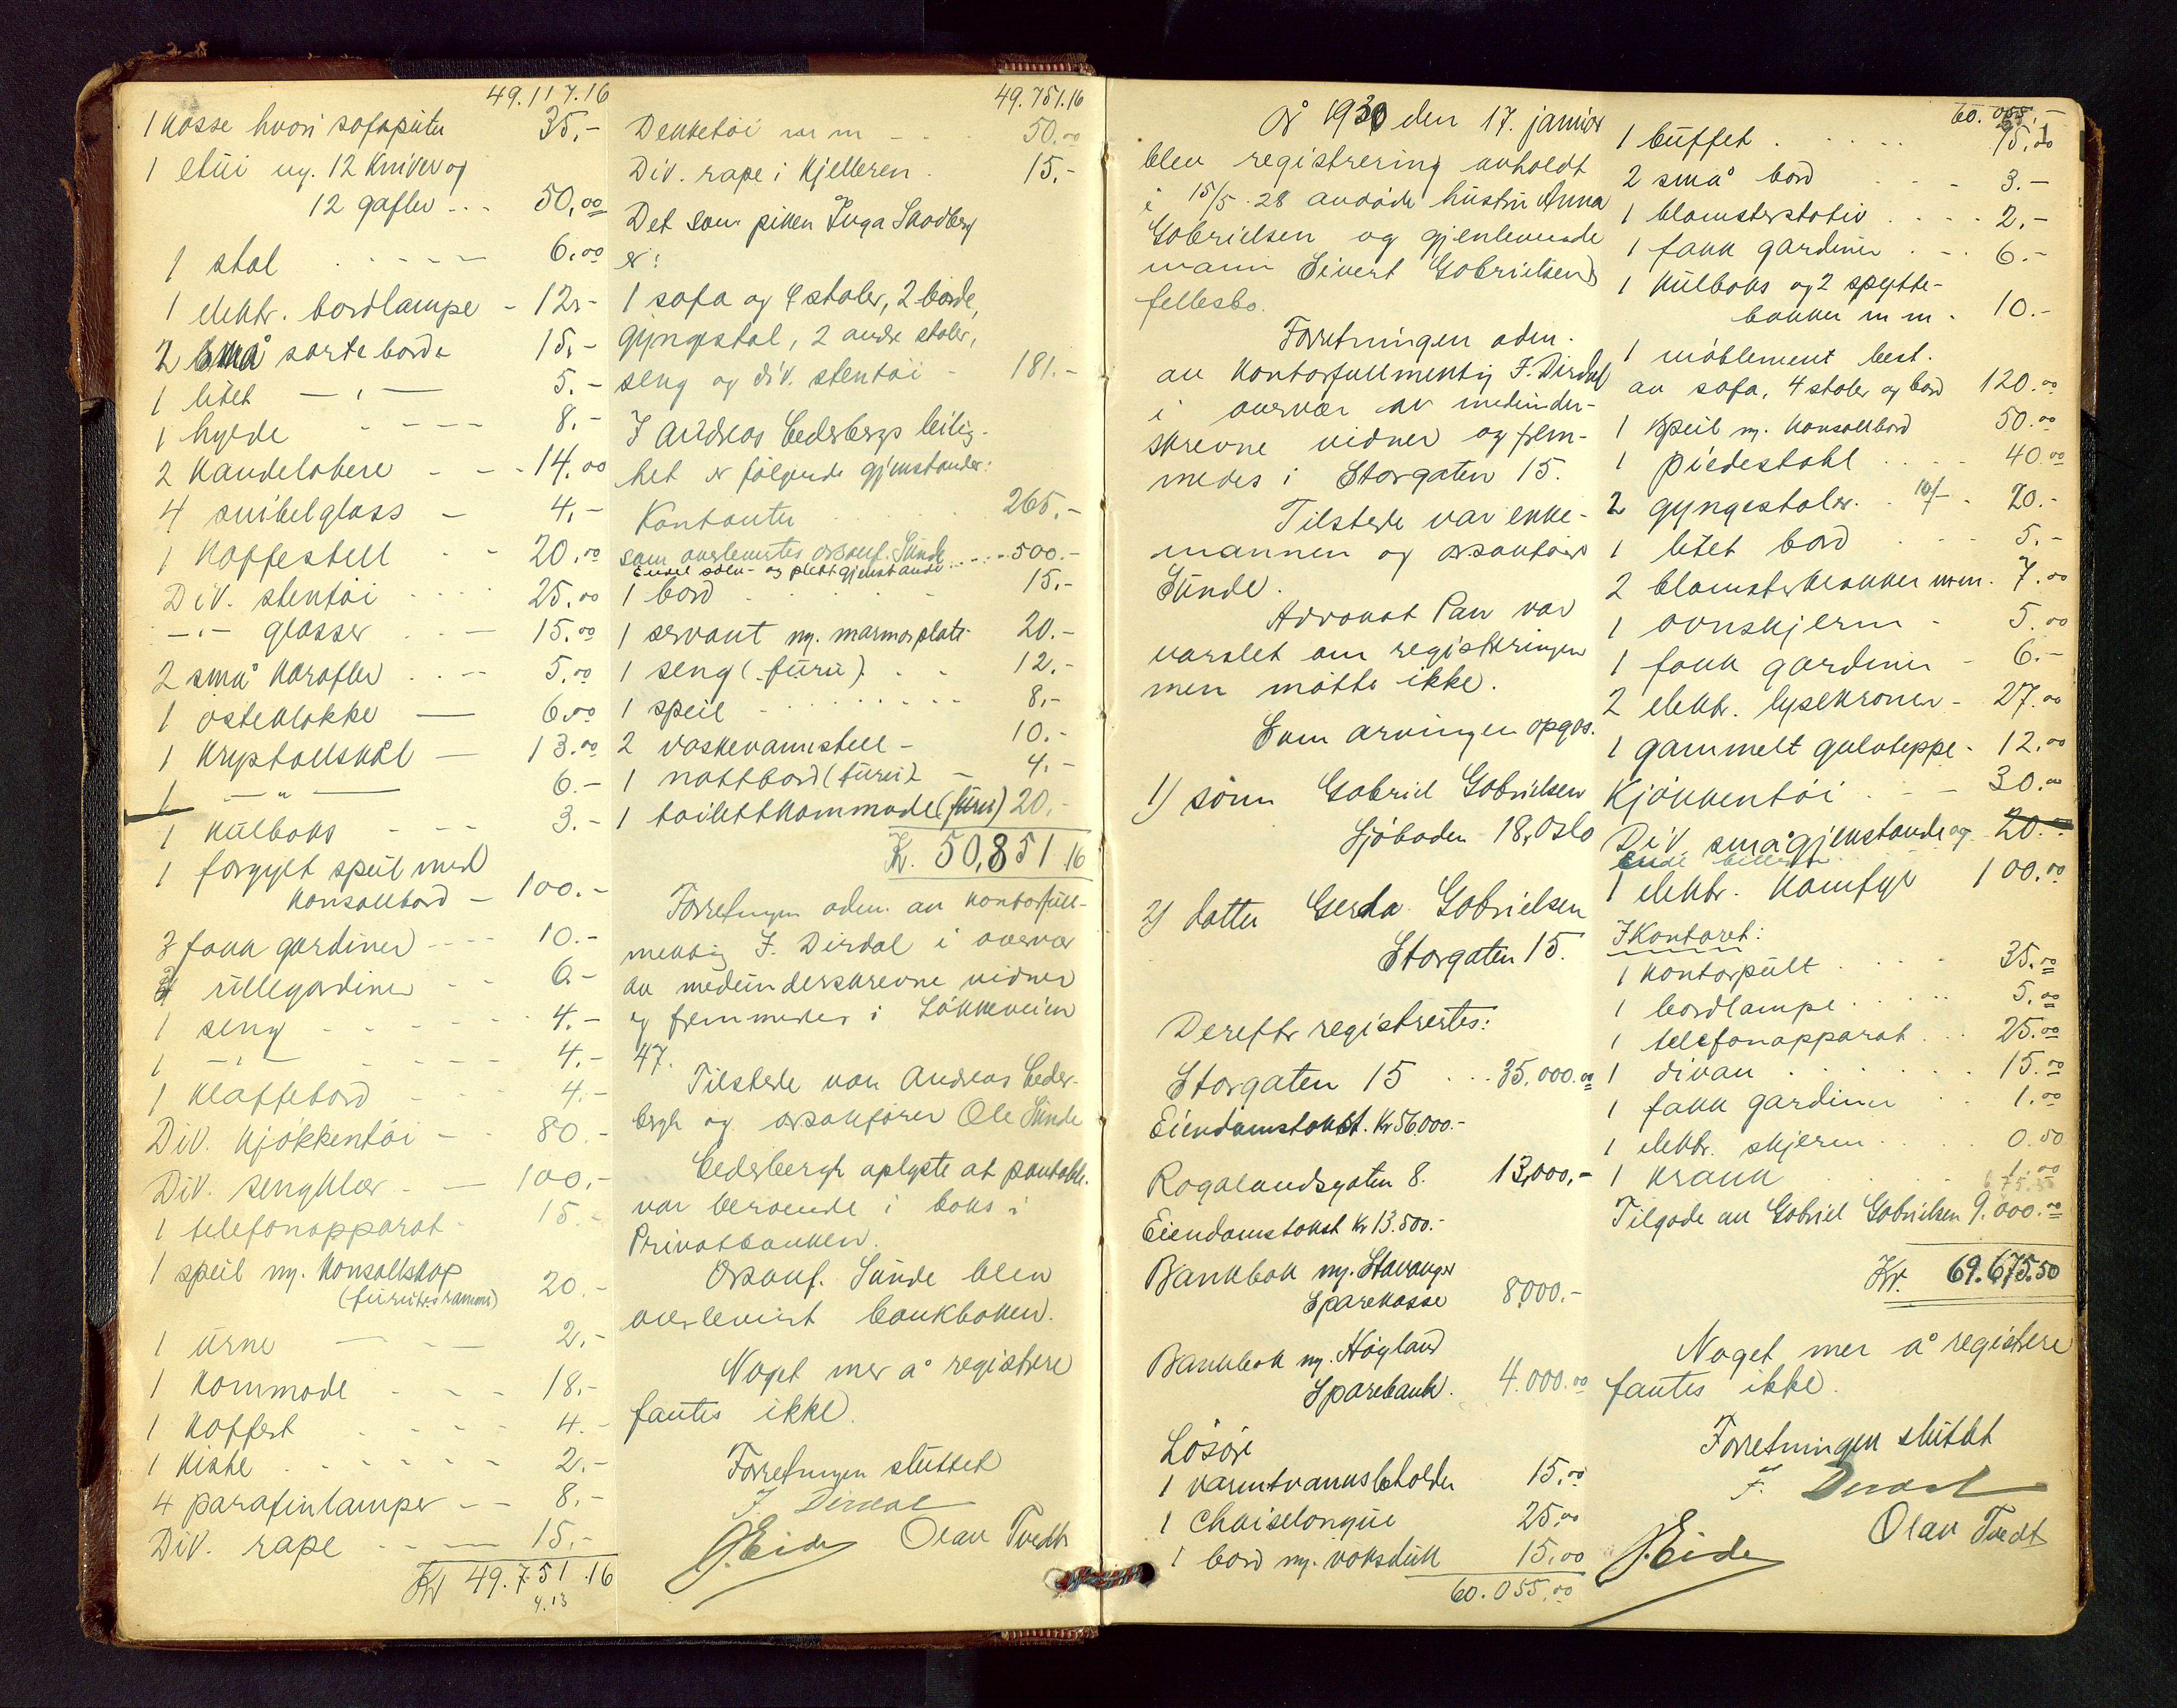 49.117.16
1 kasse hvori sofaputer 35.-
1 etui m. 12 kniver og
12 gafler - . . 50,00
1 stol . - - - - 6.00
1 elektr. bordlampe - 12.-
2 små sorte borde 15.-
1 litet — " — 5.-
1 hylde - - - - 8.-
2 kandelabere - - - 14.00
4 snibelglass - 4.-
1 kaffestell - - 20.00
Div. stentöi . . . . 25.00
-"- glasser . . - 15.00
2 små karafler . . - - 5.00
1 osteklokke — 6.00
1 krystallskål — 13.00
1 — " — 6.-
1 kulboks - - - 3.-
1 forgylt speil med
konsollbord - 100.-
3 fakk gardiner - - - - 10.-
rullegardiner - - 6.-
1 seng - - - - - - 4.-
1 -"- - - - - 4.-
1 klaffebord - - - 4.-
Div. kjökkentöi - - 80.-
Div. sengklær - — 100.-
1 telefonapparat - 15.-
1 speil m. konsollskap
(furutresramme) 20.-
1 urne — - - 2.-
1 kommode - - - 18.-
1 koffert . - - - 4.-
1 kiste . - - - - - 2.-
4 parafinlamper - - 8.-
Div. rape - - — 15.-
Kr 49.751.16
4.13
49.751.16
Dekketöi m m - - . 50.00
Div. rape i kjelleren . 15.-
Det som piken Inga Skodberg
er:
1 sofa og 4 stoler, 2 borde,
gyngestol, 2 andre stoler,
seng og div. stentöi - 181.-
I Andreas Cederberghs leilig-
het er fölgende gjenstander:
Kontanter . . . 265.-
som overlevertes orsakf. Sunde
Endel sölv- og plettgjenstande . . . - 500.-
1 bord . . . . . - 15.-
1 servant m. marmorplate. 20.-
1 seng (furu) . . - 12.-
1 speil - . . . . . . . 8.-
2 vaskevannstell - 10.-
1 nattbord (furu) - 4.-
1 toilettkommode (furu) 20.-
Kr. 50,851.16
Forretningen adm. av kontorfull-
mektig F. Dirdal i overvær
av medunderskrevne vidner
og fremmedes i Lökkeveien
47.
Tilstede var Andreas Ceder-
bergh og orsakförer Ole Sunde
Cederbergh oplyste at pantobl.
var beroende i boks i
Privatbanken.
Orsakf. Sunde blev
overlevert bankboken.
Noget mer å registrere
fantes ikke.
Forretningen sluttet
F. Dirdal
J. Eide Olav Tvedt
År 1930 den 17. januar
blev registrering avholdt
i 15/5.28 avdöde hustru Anna
Gabrielsen og gjenlevende
mann Sivert Gabrielsens
fellesbo.
Forretningen adm.
av kontorfullmektig F. Dirdal
i overvær av medunder-
skrevne vidner og frem-
medes i Storgaten 15.
Tilstede var enke-
mannen og orsakförer
Sunde.
Advokat Pav var
varslet om registreringen
men mötte ikke.
Som arvinger opgas.
1) sönn Gabriel Gabrielsen
Sjöboden 18, Oslo
2) datter Gerda Gabrielsen
Storgaten 15.
Derefter registrertes:
Storgaten 15 . . . 35.000.00
Eiendomstakst. Kr 56000.-
Rogalandsgaten 8. 13,000,-
Eiendomstakst Kr 13.500.-
Bankbok m. Stavanger
Sparekasse 8000.-
Bankbok m. Högland
Sparebank. 4.000.00
Lösöre
1 varmtvannsbeholder 15.00
1 Chaiselongue 25.00
1 bord m. voksduk 15.00
60.055.00
60.055.-
1 buffet . . . . . 75.00
2 små bord - - - 3.-
1 blomsterstativ . . . . 2.-
1 fakk gardiner . - . 6.-
1 kulboks og 2 spytte-
bakker m m . 10.-
1 möblement best.
av sofa, 4 stoler og bord 120.00
1 speil m. konsollbord 50.00
1 piedestahl . . . . 40.00
2 gyngestoler. . 10/- . 20.-
1 litet bord . . . 5.-
2 blomsterkrakker m m. 7.00
1 ovnskjerm - 5.00
1 fakk gardiner - 6.-
2 elektr. lysekroner - 27.00
1 gammelt gulvteppe - 12.00
Kjökkentöi . - - 30.00
Div. smågjenstande og 20.-
endel billeder
1 elektr. komfyr 100.00
I Kontoret:
1 kontorpult . . . . 35.00
1 bordlampe . . . . . 5.00
1 telefonapparat . . . 25.00
1 divan . . . . . . . 15.00
1 fakk gardiner . . 1.00
1 elektr. skjerm . . . . 0.50
1 krakk . . . . 1.00
675.50
Tilgode av Gabriel Gabrielsen 9.000.00
Kr. 69.675.50
Noget mer å registrere
fantes ikke.
Forretningen sluttet
F. Dirdal
J. Eide Olav Tvedt